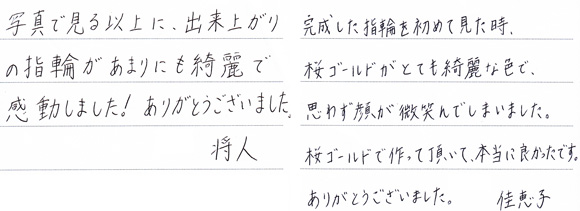 写真で見る以上に、出来上がり
の指輪があまりにも綺麗で
感動しました！ありがとうございました。
将人
完成した指輪を初めて見た時、
桜ゴールドがとても綺麗な色で、
思わず顔が微笑んでしまいました。
桜ゴールドで作って頂いて、本当に良かったです。
ありがとうございました。 佳恵子